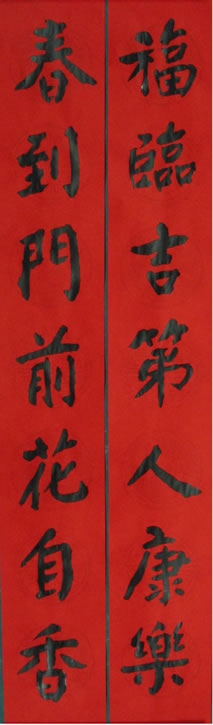 福臨吉第人康樂
春到門前花自香